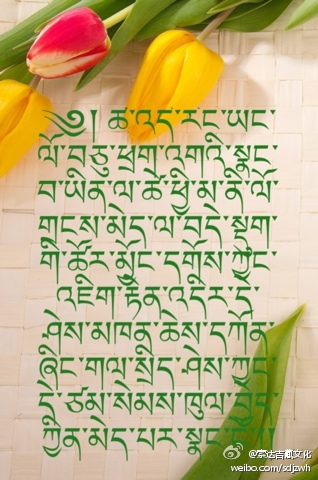 ༄༅། ཚ་འདི་རང་ཡང་
ལོ་བཅུ་ཕྲག་འགའི་སྣང་
བ་ཡིན་ལ་ཚེ་ཕྱི་མ་ནི་ལོ་
གྲངས་མེད་ལ་བདེ་སྡུག་
གི་ཚོར་མྱོང་དགོས་ཀྱང་
འཇིག་རྟེན་འདིར་དེ་
ཤེས་མཁན་ཆེས་དཀོན་
ཞིང་གལ་སྲིད་ཤེས་ཀྱང་
དེ་ཙམ་སེམས་ཁུལ་བྱེད་
ཀྱིན་མེད་པར་སྣང་ངོ་།
@索达吉歌文化
weibo.com/sdjzwh